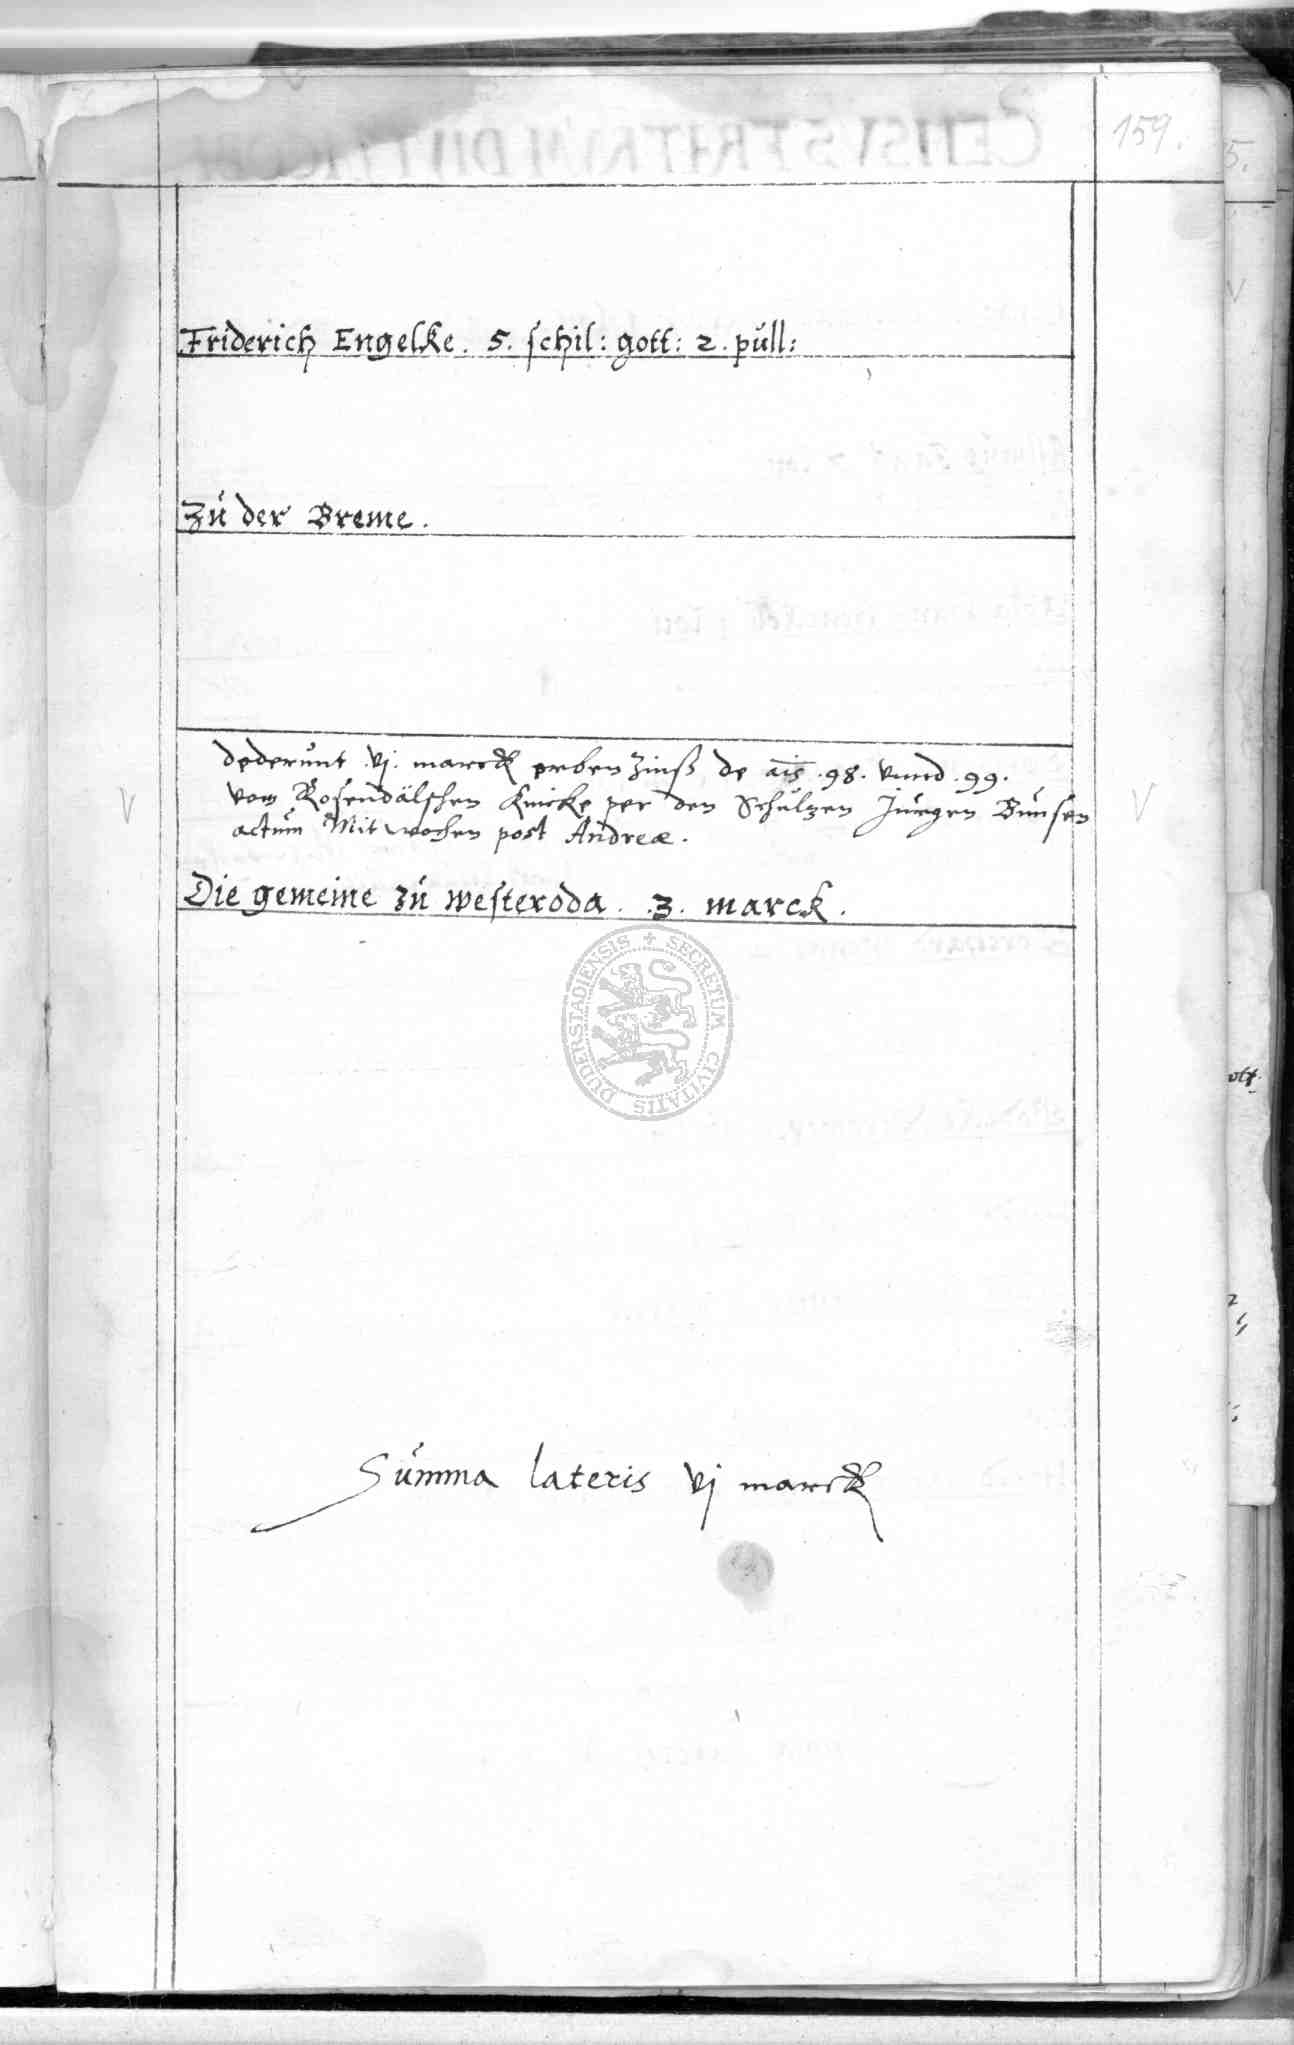 159.
Friderich Engelke. 5. schil: gott: 2. pull:
Zu der Breme.
dederunt .vj. marck erbenzinß de ais .98. vnnd .99.
vom Rosendälschen Knicke per den Schultzen Jurgen Bunsen
actum Mitwochen post Andreæ.
Die gemeine zu westeroda. .3. marck.
SECRETUM CIVITATIS DUDERSTADIENSIS
Summa lateris vj marck